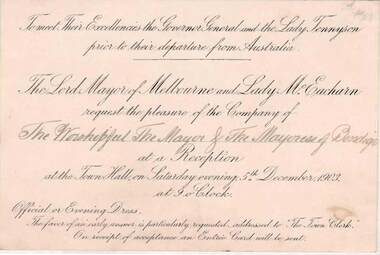 To meet Their Excellencies the Governor General and the Lady Tennyson
prior to their departure from Australia.
The Lord Mayor of Melbourne and Lady McEacharn
request the pleasure of the Company of
The Worshipful The Mayor & The Mayoress of Bendigo
at a Reception
at the Town Hall, on Saturday evening, 5th December, 1903,
at 9 o'Clock.
Official or Evening Dress.
The favor of an early answer is particularly requested, addressed to "The Town Clerk."
On receipt of acceptance an Entrée Card will be sent.